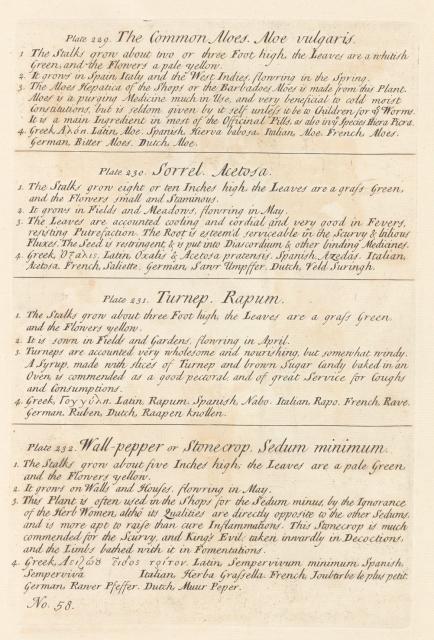 Plate 229. The Common Aloes. Aloe vulgaris.
1. The Stalks grow about two or three Foot high, the Leaves are a whitish
Green, and the Flowers a pale yellow.
2. It grows in Spain, Italy and the West Indies, flowring in the Spring.
3. The Aloes Hepatica of the Shops or the Barbadoes Aloes is made from this Plant.
Aloes is a purging Medicine much in Use, and very beneficial to cold moist
Constitutions, but is seldom given by it self unless it be to Children for yͤ Worms.
It is a main Ingredient in most of the Officinal Pills, as also in yͤ Species Hiera Picra.
4. Greek, Latin, Aloe. Spanish, Hierva babosa. Italian, Aloe. French, Aloes.
German, Bitter Aloes. Dutch, Aloe.
Plate 230. Sorrel. Acetosa.
1. The Stalks grow eight or ten Inches high, the Leaves are a graſs Green,
and the Flowers small and Staminous.
2. It grows in Fields and Meadows, flowring in May.
3. The Leaves are accounted cooling and cordial and very good in Fevers,
resisting Putrefaction. The Root is esteem'd serviceable in the Scurvy & bilious
Fluxes. The Seed is restringent, & is put into Diascordium & other binding Medicines.
4. Greek, Ὀξαλίς, Latin, Oxalis & Acetosa pratensis, Spanish, Azedas. Italian,
Acetosa. French, Saliette. German, Sawr Umpffer. Dutch, Veld Suringh.
Plate 231. Turnep. Rapum.
1. The Stalks grow about three Foot high, the Leaves are a graſs Green
and the Flowers yellow.
2. It is sown in Fields and Gardens, flowring in April.
3. Turneps are accounted very wholesome and nourishing, but somewhat windy.
A Syrup, made with slices of Turnep and brown Sugar Candy baked in an
Oven is commended as a good pectoral and of great Service for Coughs
and Consumptions.
4. Greek, Γογγύλη. Latin, Rapum. Spanish, Nabo. Italian, Rapo. French, Rave.
German, Ruben, Dutch, Raapen knollen.
Plate 232. Wall-pepper or Stonecrop. Sedum minimum.
1. The Stalks grow about five Inches high, the Leaves are a pale Green
and the Flowers yellow.
2. It grows on Walls and Houses, flowring in May.
3. This Plant is often used in the Shops for the Sedum minus, by the Ignorance
of the Herb Women, altho' its Qualities are directly opposite to the other Sedums,
and is more apt to raiſe than cure Inflammations. This Stonecrop is much
commended for the Scurvy, and King's Evil, taken inwardly in Decoctions,
and the Limbs bathed with it in Fomentations.
4. Greek, Ἀειζώου εἶδος τρίτον. Latin, Sempervivum minimum. Spanish,
Semperviva Italian, Herba Grassella. French, Joubarbe le plus petit.
German, Rawer Pfeffer. Dutch, Muur Peper.
No. 58.